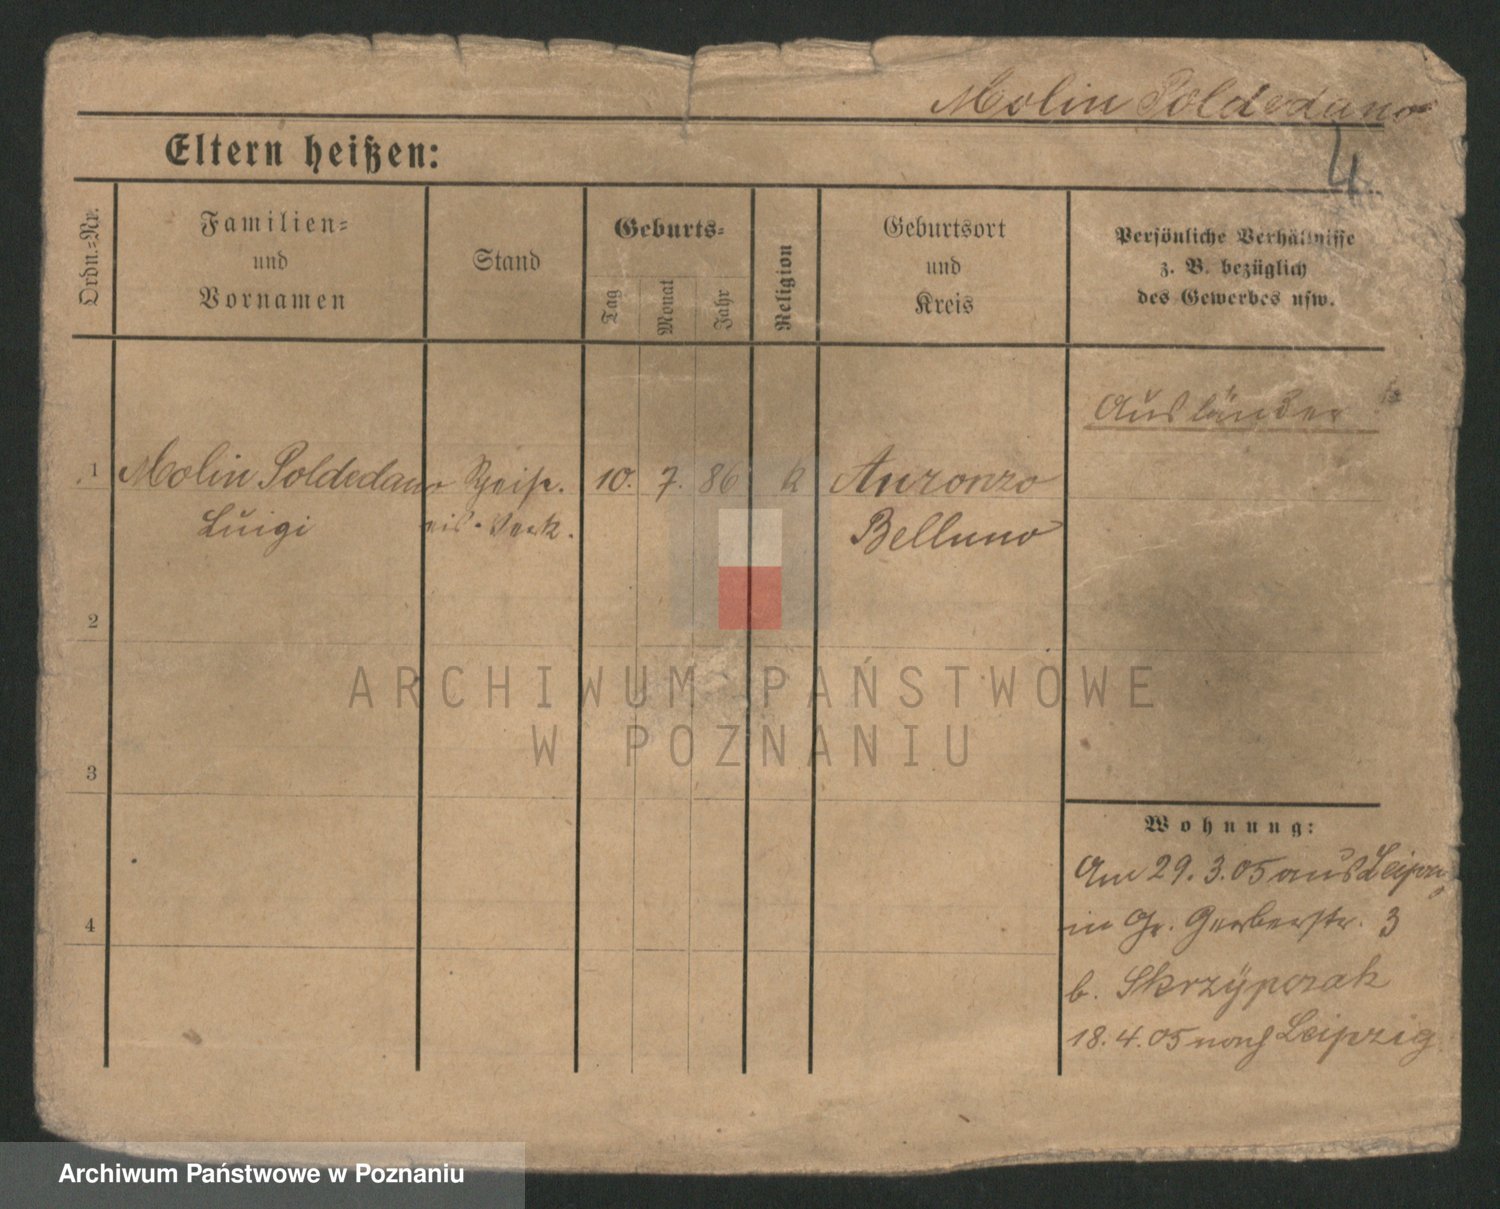 Molin Poldedano
4.
Eltern heißen:
Ordn.=Nr.
Familien=
und
Vornamen
Stand
Geburts=
Tag
Monat
Jahr
Religion
Geburtsort
und
Kreis
Persönliche Verhältnisse
z. B. bezüglich
des Gewerbes usw.
Ausländer
1 Molin Poldedano Speise 10. 7. 86 k Auronzo
Luigi eis-Verk. Belluno
2
3
4
ARCHIWUM PAŃSTWOWE
W POZNANIU
Wohnung:
Am 29.3.05 aus Leipzig
in Gr. Gerberstr. 3
b. Skrzÿpczak
18.4.05 nach Leipzig
Archiwum Państwowe w Poznaniu